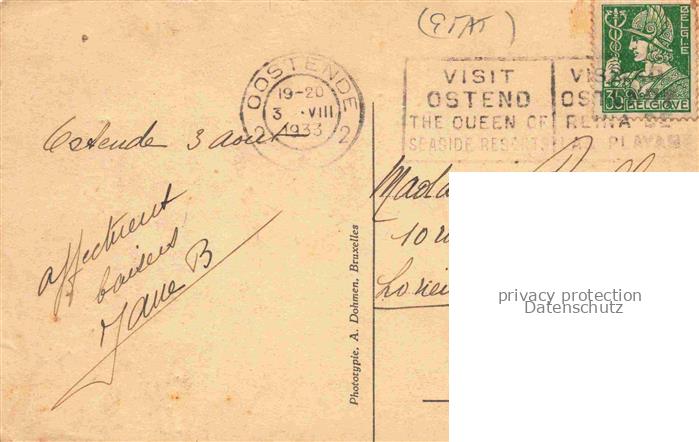 (ETAT)
OOSTENDE
19-20
3 VIII
1933
2 2
VISIT
OSTEND
THE QUEEN OF
SEASIDE RESORTS
REINA DE
LAS PLAYAS
BELGIE
35
BELGIQUE
Ostende 3 aout
affectueux
baisers
Jane B
Phototypie, A. Dohmen, Bruxelles
Madame
10
privacy protection
Datenschutz